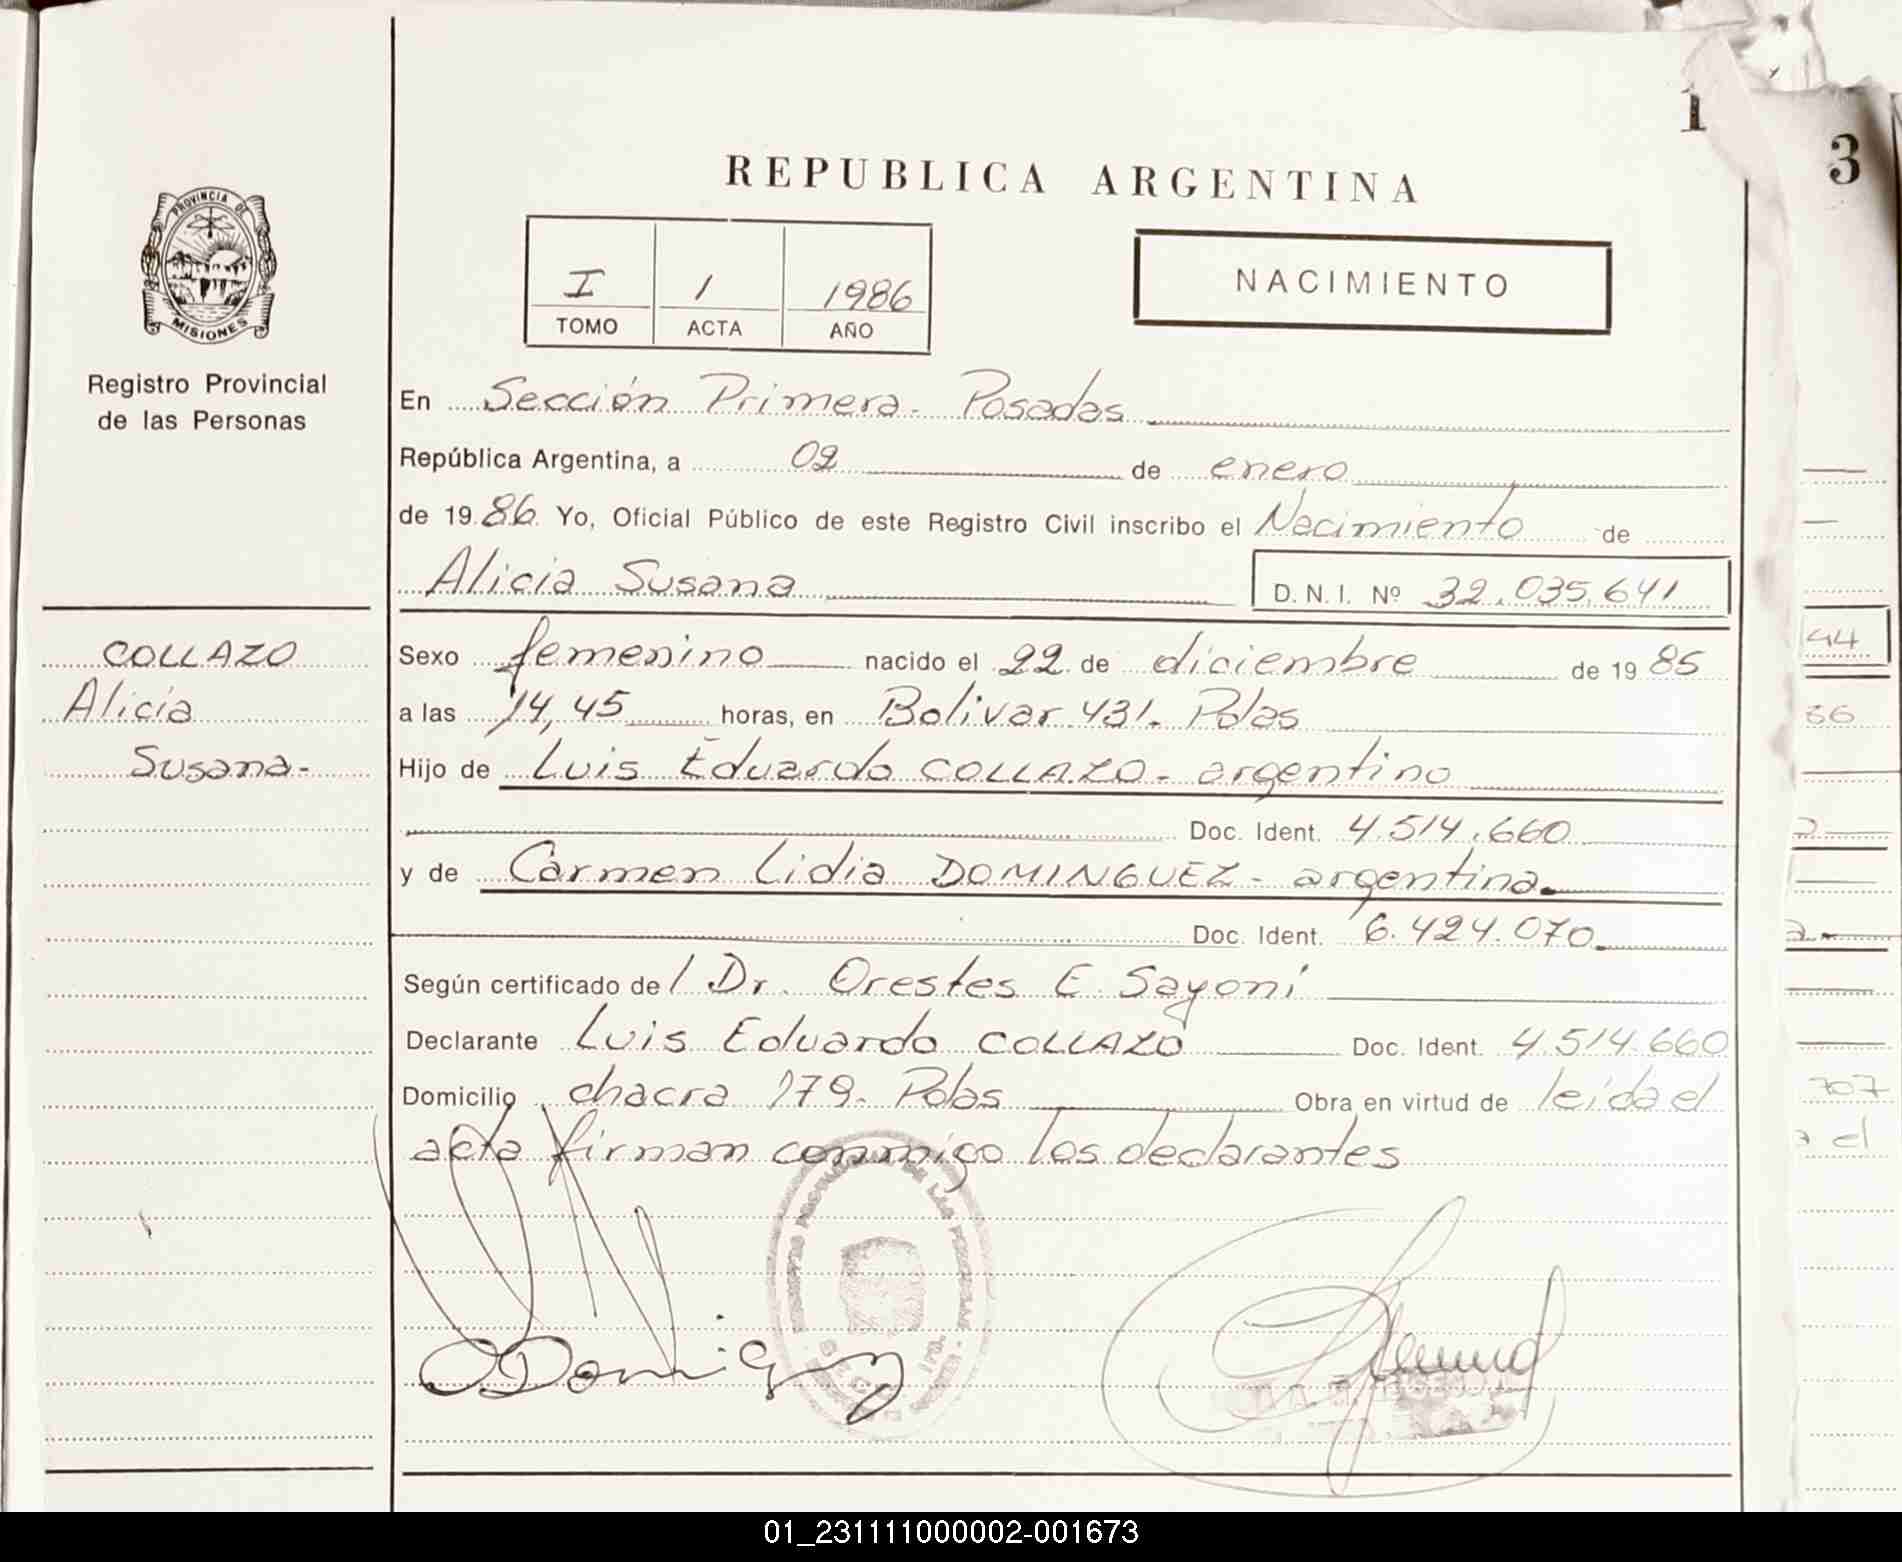 1
3
REPUBLICA ARGENTINA
PROVINCIA DE
MISIONES
Registro Provincial
de las Personas
I 1 1986
TOMO ACTA AÑO
NACIMIENTO
En Sección Primera. Posadas
República Argentina, a 02 de enero
de 1986. Yo, Oficial Público de este Registro Civil inscribo el Nacimiento de
Alicia Susana D.N.I. Nº 32.035.641
COLLAZO
Alicia
Susana.-
Sexo femenino nacido el 22 de diciembre de 1985
a las 14,45 horas, en Bolivar 431. Pdas
Hijo de Luis Eduardo COLLAZO - argentino
Doc. Ident. 4.514.660
y de Carmen Lidia DOMINGUEZ - argentina.
Doc. Ident. 6.424.070.
Según certificado del Dr. Orestes E. Sayoni
Declarante Luis Eduardo COLLAZO Doc. Ident. 4.514.660
Domicilio chacra 179. Pdas Obra en virtud de leida el
acta firman conmigo los declarantes
44
36
707
a el
01_231111000002-001673